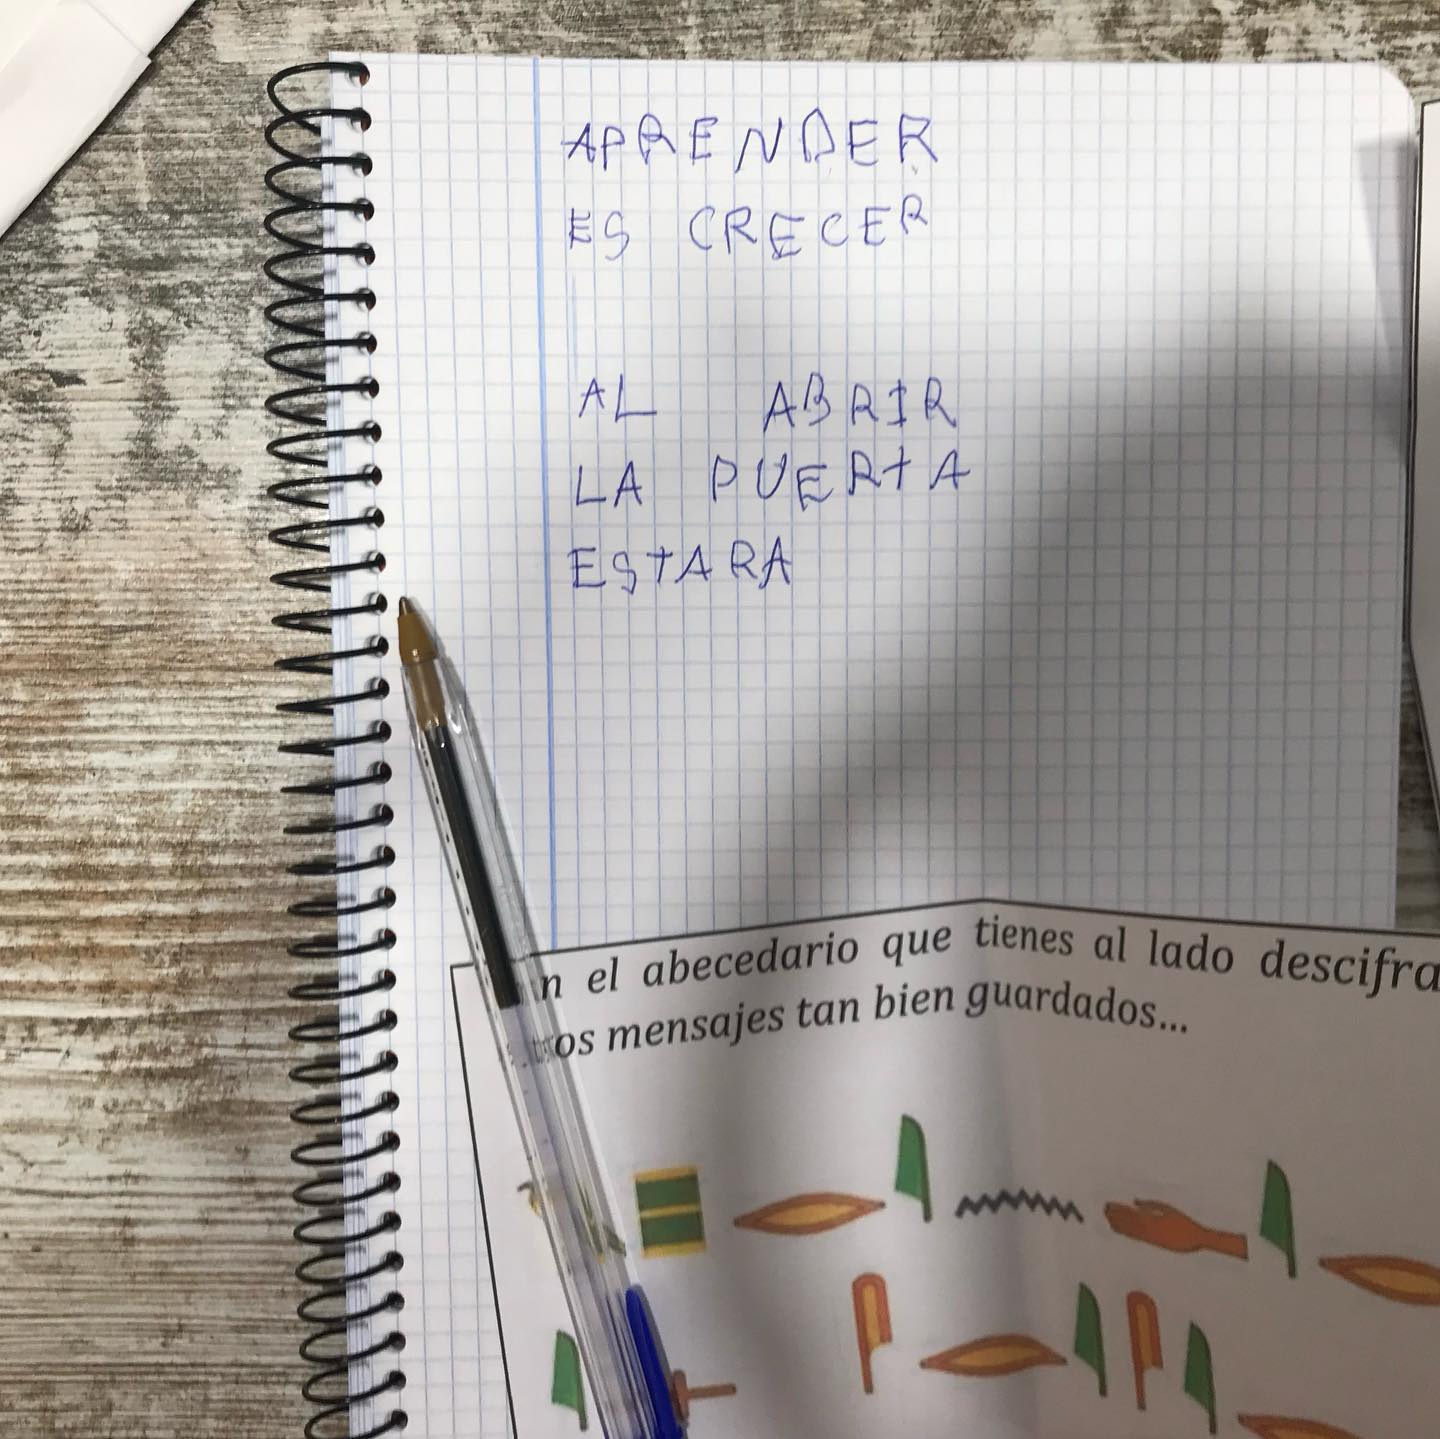 APRENDER
ES CRECER
AL ABRIR
LA PUERTA
ESTARA
el abecedario que tienes al lado descifra
mensajes tan bien guardados...